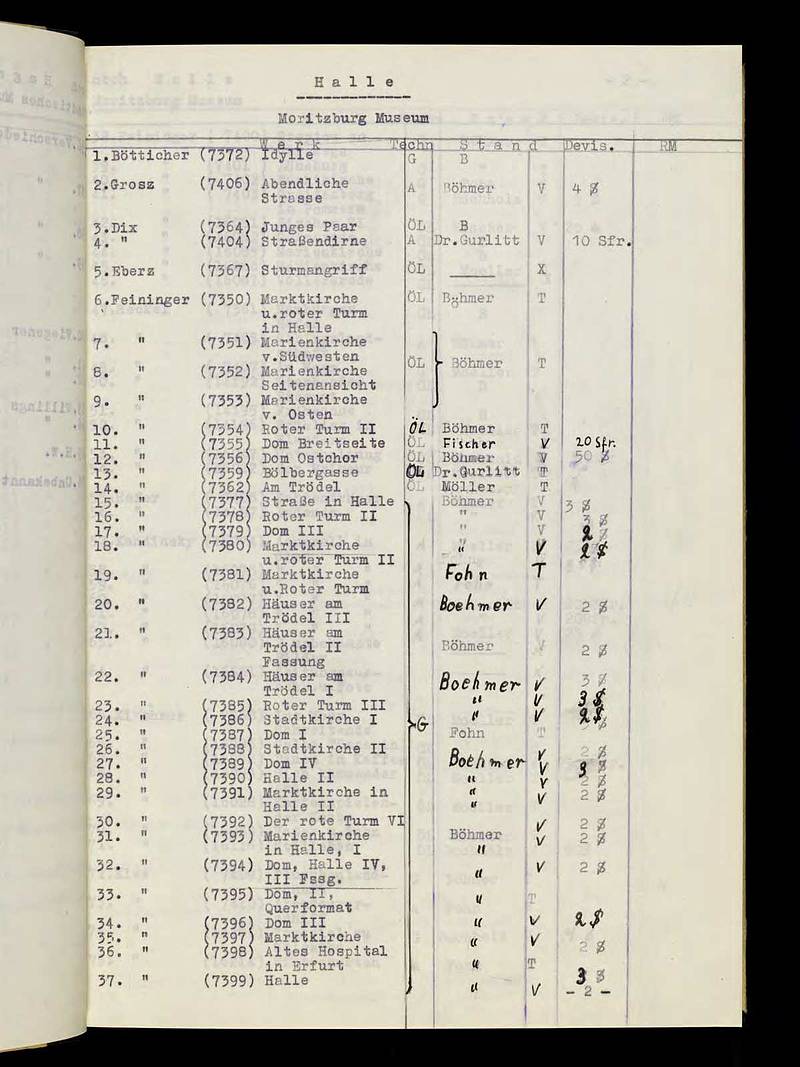 H a l l e
Moritzburg Museum
W e r k Techn S t a n d Devis. RM
1.Bötticher (7372) Idylle G B
2.Grosz (7406) Abendliche A Böhmer V 4 $
Strasse
3.Dix (7364) Junges Paar ÖL B
4. " (7404) Straßendirne A Dr.Gurlitt V 10 Sfr.
5.Eberz (7367) Sturmangriff ÖL _____ X
6.Feininger (7350) Marktkirche ÖL Böhmer T
u.roter Turm
in Halle
7. " (7351) Marienkirche
v.Südwesten ÖL Böhmer T
8. " (7352) Marienkirche
Seitenansicht
9. " (7353) Marienkirche
v. Osten
10. " (7354) Roter Turm II ÖL Böhmer T
11. " (7355) Dom Breitseite ÖL Fischer V 20 Sfr.
12. " (7356) Dom Ostchor ÖL Böhmer V 50 $
13. " (7359) Bölbergasse ÖL Dr.Gurlitt T
14. " (7362) Am Trödel ÖL Möller T
15. " (7377) Straße in Halle Böhmer V 3 $
16. " (7378) Roter Turm II " V 3 $
17. " (7379) Dom III " V 2 $
18. " (7380) Marktkirche " V 2 $
u.roter Turm II
19. " (7381) Marktkirche Fohn T
u.Roter Turm
20. " (7382) Häuser am Boehmer V 2 $
Trödel III
21. " (7383) Häuser am
Trödel II Böhmer V 2 $
Fassung
22. " (7384) Häuser am Boehmer V 3 $
Trödel I
23. " (7385) Roter Turm III " V 3 $
24. " (7386) Stadtkirche I G " V 2 $
25. " (7387) Dom I Fohn T
26. " (7388) Stadtkirche II Boehmer V 2 $
27. " (7389) Dom IV V 3 $
28. " (7390) Halle II " V 2 $
29. " (7391) Marktkirche in " V 2 $
Halle II "
30. " (7392) Der rote Turm VI V 2 $
31. " (7393) Marienkirche Böhmer V 2 $
in Halle, I "
32. " (7394) Dom, Halle IV, V 2 $
III Fssg. "
33. " (7395) Dom, II, " T
Querformat
34. " (7396) Dom III " V 2 $
35. " (7397) Marktkirche " V
36. " (7398) Altes Hospital 2 $
in Erfurt " T
37. " (7399) Halle " V 3 $
- 2 -